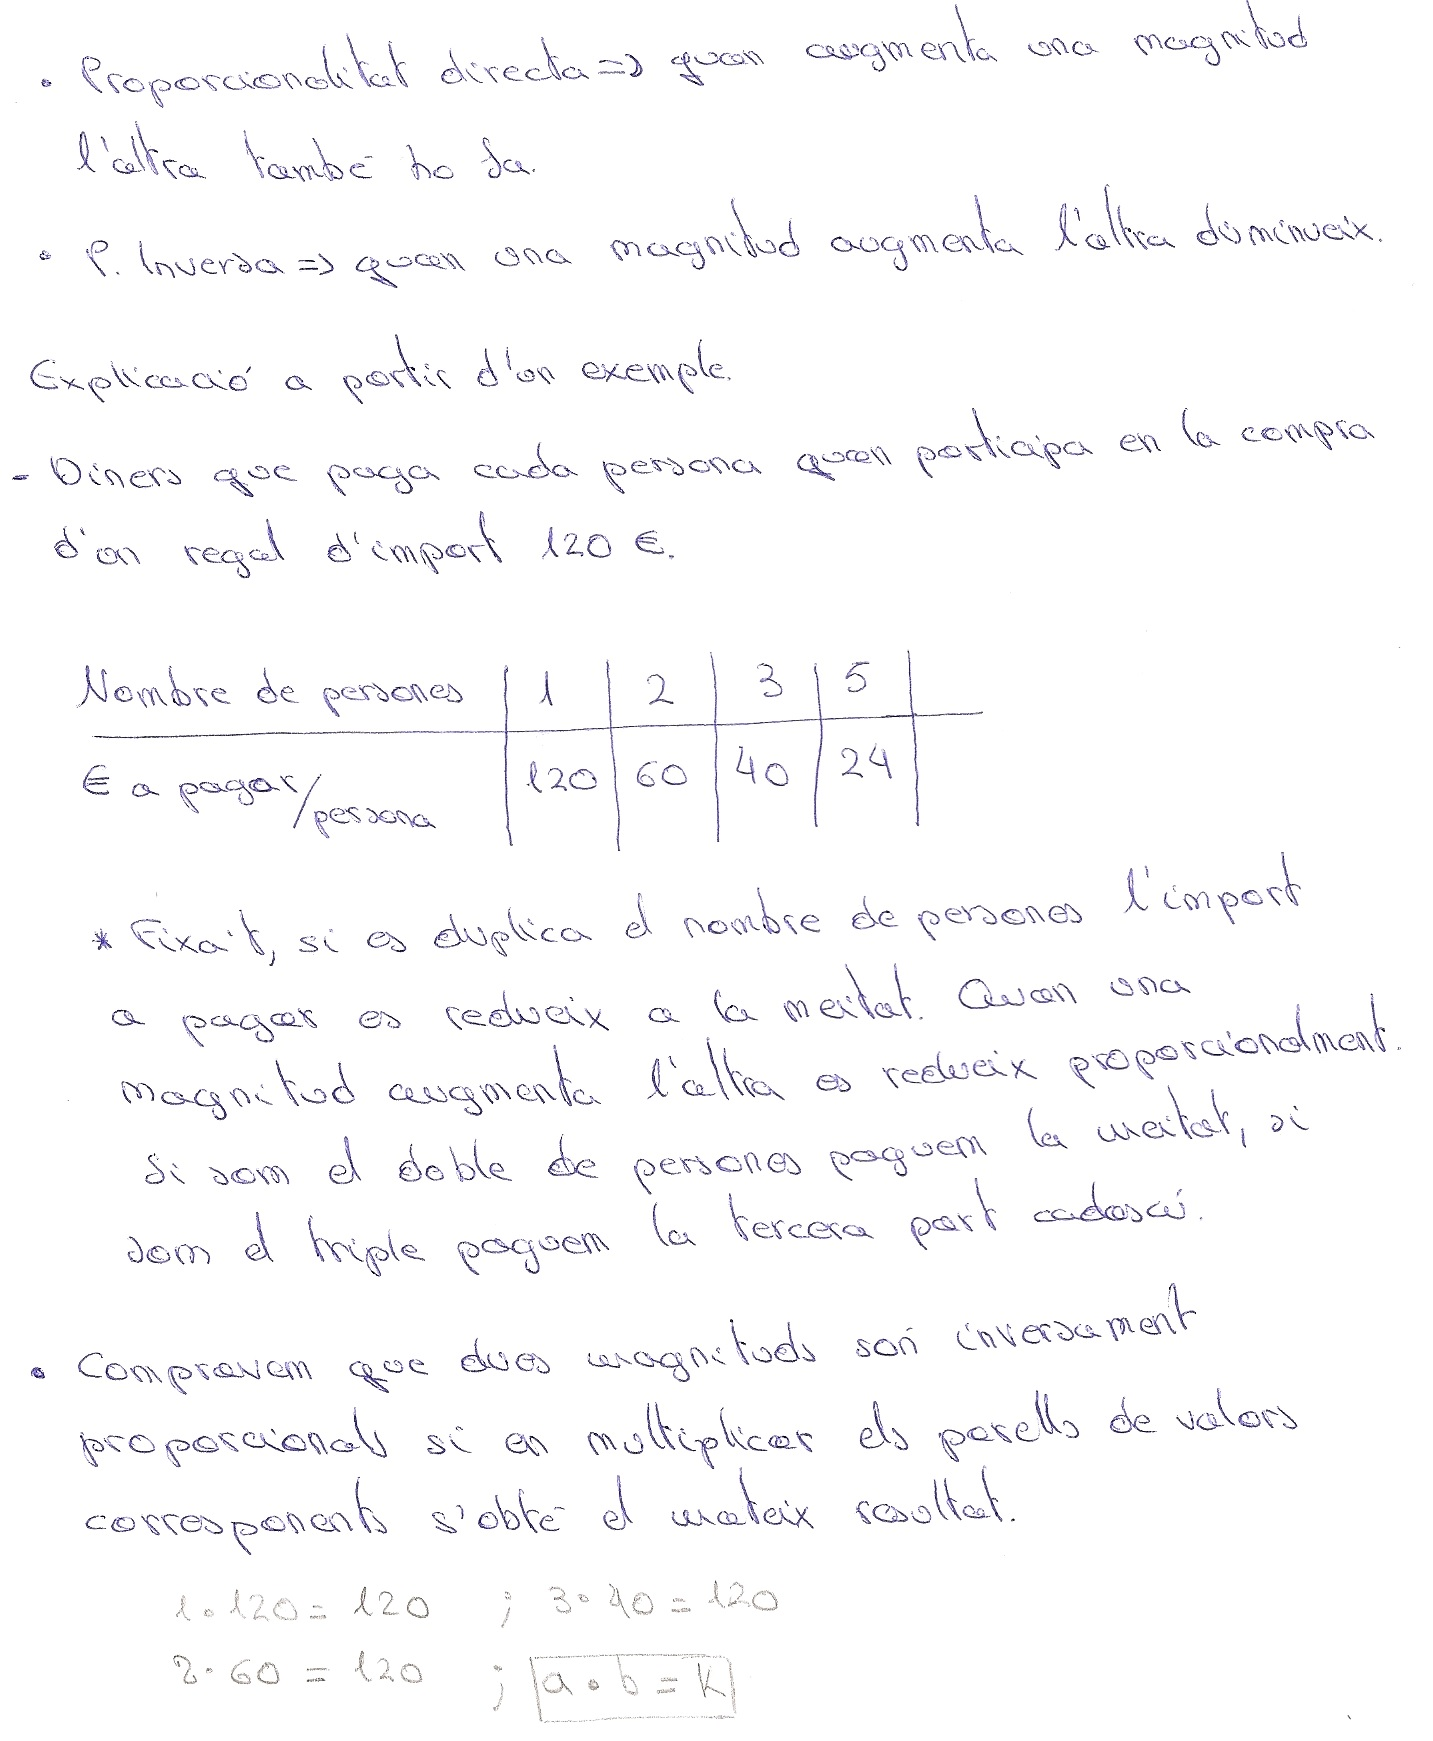 • Proporcionalitat directa => quan augmenta una magnitud
l'altra també ho fa.
• P. Inversa => quan una magnitud augmenta l'altra disminueix.
Explicació a partir d'un exemple.
- Diners que paga cada persona quan participa en la compra
d'un regal d'import 120 €.
Nombre de persones | 1 | 2 | 3 | 5 |
€ a pagar/persona | 120 | 60 | 40 | 24 |
* Fixa't, si es duplica el nombre de persones l'import
a pagar es redueix a la meitat. Quan una
magnitud augmenta l'altra es redueix proporcionalment.
Si som el doble de persones paguem la meitat, si
som el triple paguem la tercera part cadascú.
• Comprovem que dues magnituds són inversament
proporcionals si en multiplicar els parells de valors
corresponents s'obté el mateix resultat.
1 • 120 = 120 ; 3 • 40 = 120
2 • 60 = 120 ; a • b = K